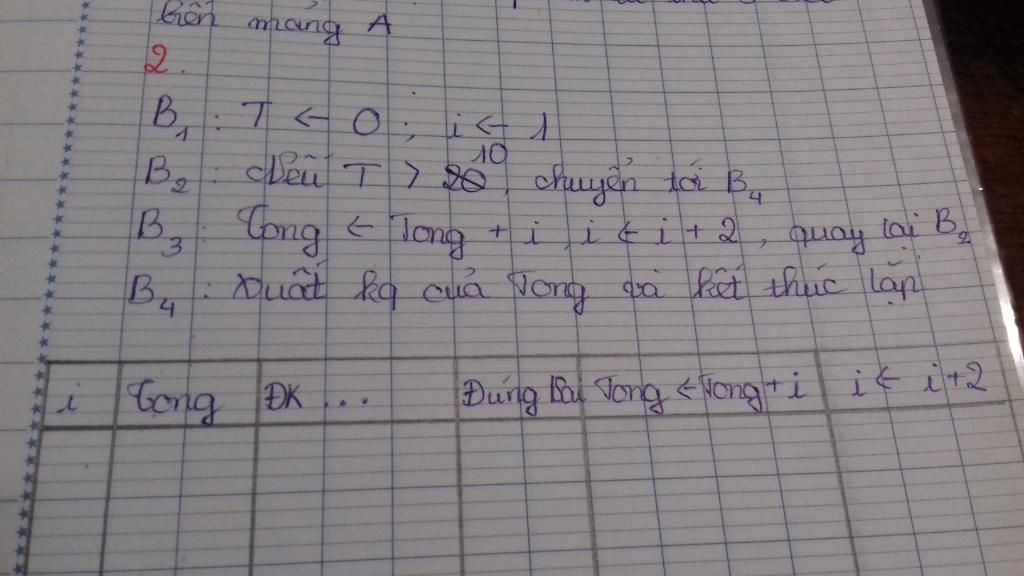 biến mảng A
2.
B1 : T ← 0 ; i ← 1
10
B2 : Nếu T > 20, chuyển tới B4
B3 : Tong ← Tong + i, i ← i + 2, quay lại B2
B4 : Xuất kq của Tong và kết thúc lặp
i Tong ĐK ... Đúng hay Tong ← Tong + i i ← i + 2